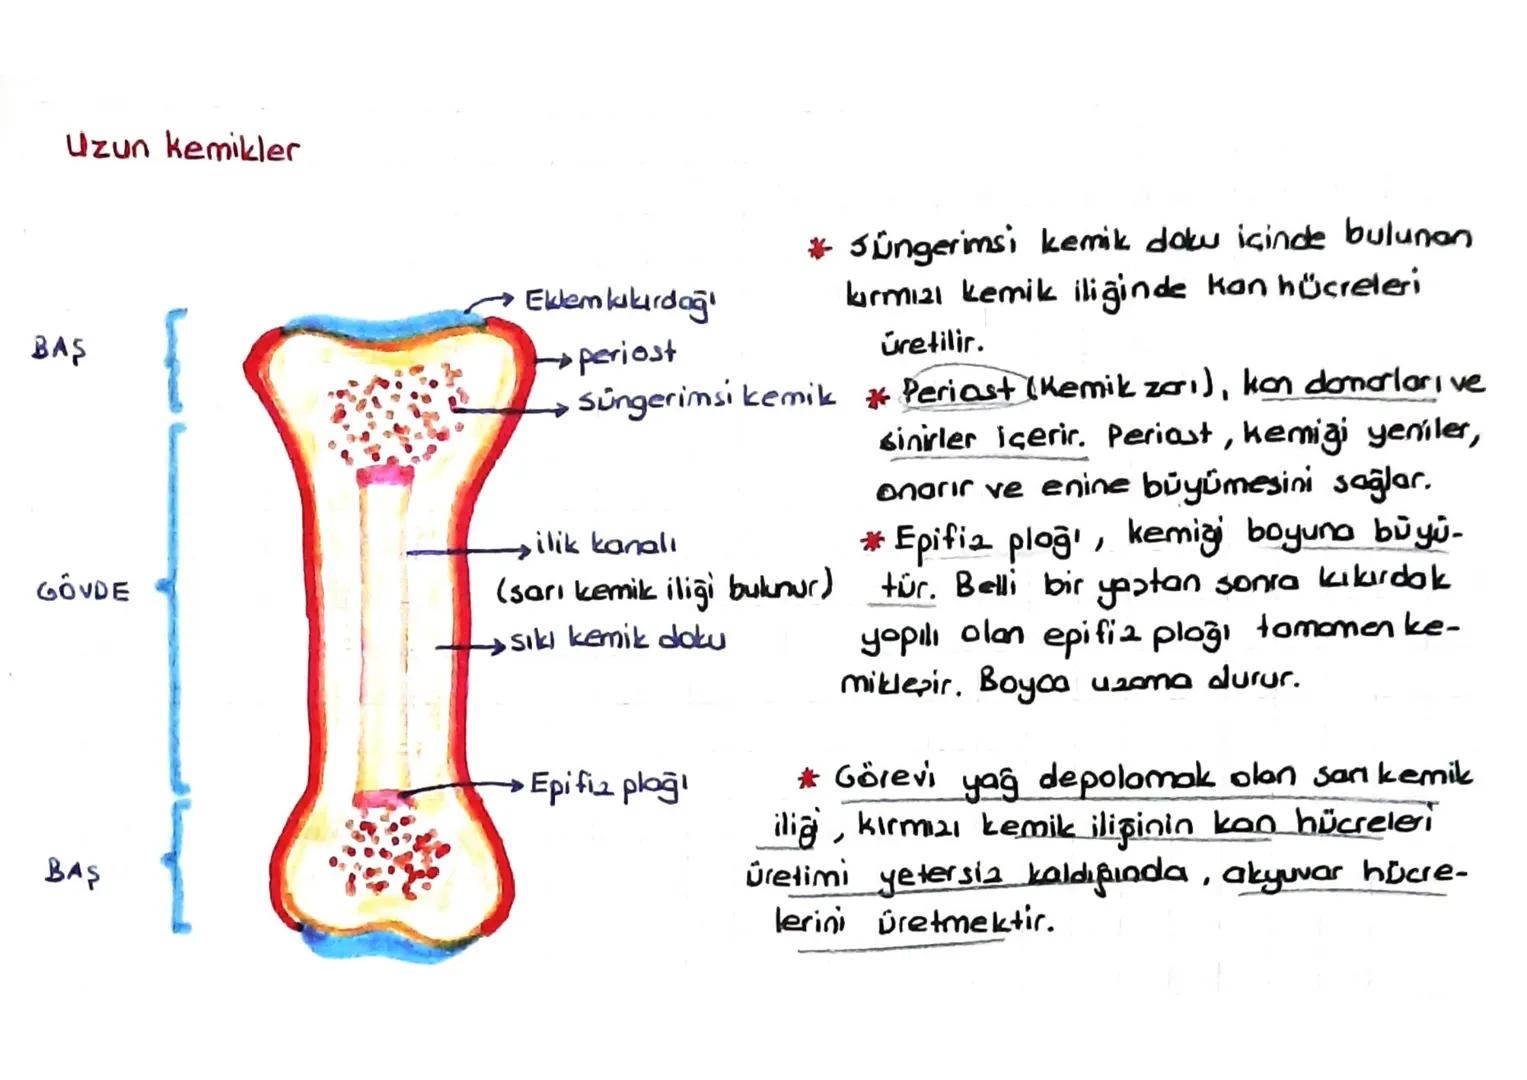 Uzun kemikler
BAŞ
GÖVDE
BAŞ
Eklem kıkırdağı
periost
süngerimsi kemik
ilik kanalı
(sarı kemik iliği bulunur)
sıkı kemik doku
Epifiz plağı
* Süngerimsi kemik doku içinde bulunan
kırmızı kemik iliğinde kan hücreleri
üretilir.
* Periost (Kemik zarı), kan damarları ve
sinirler içerir. Periost, kemiği yeniler,
onarır ve enine büyümesini sağlar.
* Epifiz plağı, kemiği boyuna büyü-
tür. Belli bir yaştan sonra kıkırdak
yapılı olan epifiz plağı tamamen ke-
mikleşir. Boyca uzama durur.
* Görevi yağ depolamak olan sarı kemik
iliği, kırmızı kemik iliğinin kan hücreleri
üretimi yetersiz kaldığında, akyuvar hücre-
lerini üretmektir.